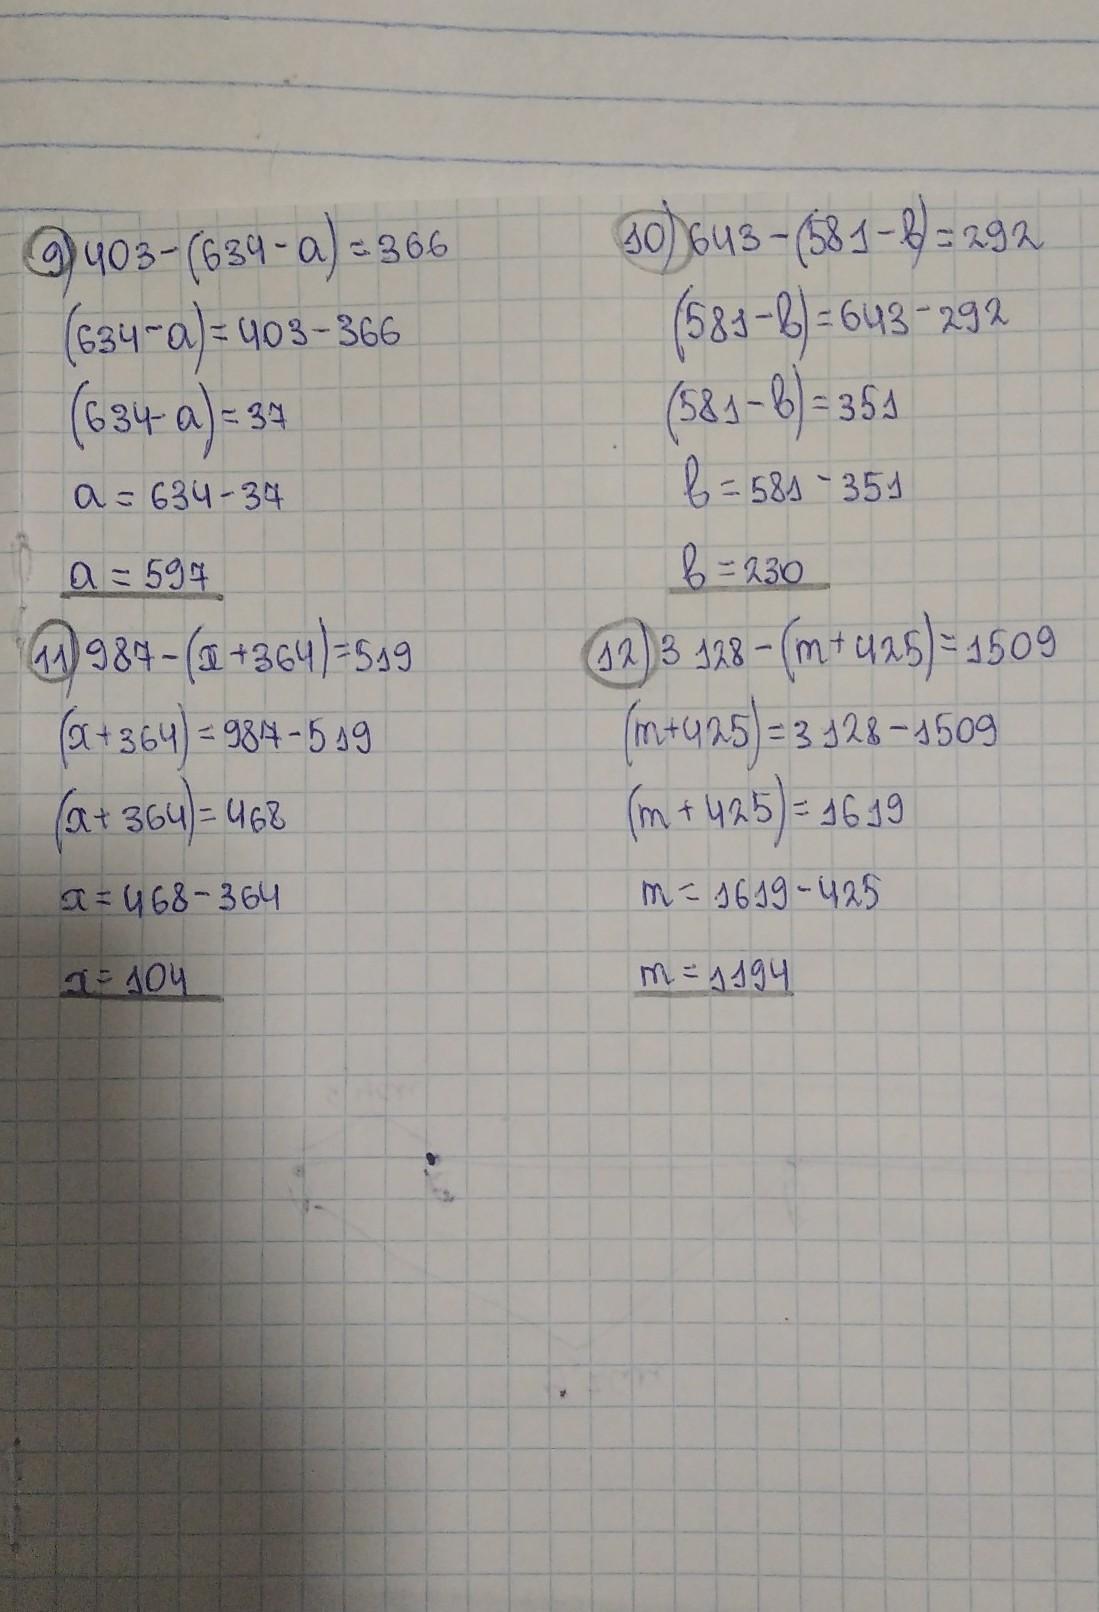 9) 403-(634-a)=366
(634-a)=403-366
(634-a)=37
a=634-37
a=597
10) 643-(581-в)=292
(581-в)=643-292
(581-в)=351
в=581-351
в=230
11) 987-(x+364)=519
(x+364)=987-519
(x+364)=468
x=468-364
x=104
12) 3 128-(m+425)=1509
(m+425)=3 128-1509
(m+425)=1619
m=1619-425
m=1194